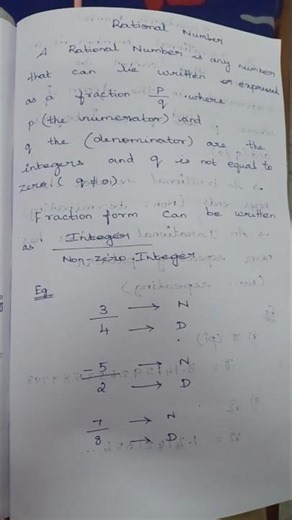 Rational Number
A Rational Number is any number
that can be written or expressed
as a fraction P/q, where
p (the numerator) and
q the (denominator) are the
integers and q is not equal to
zero. (q ≠ 0)
Fraction form can be written
as. Integer / Non-zero.Integer
Eg
3 → N
4 → D
-5 → N
2 → D
7 → N
8 → D